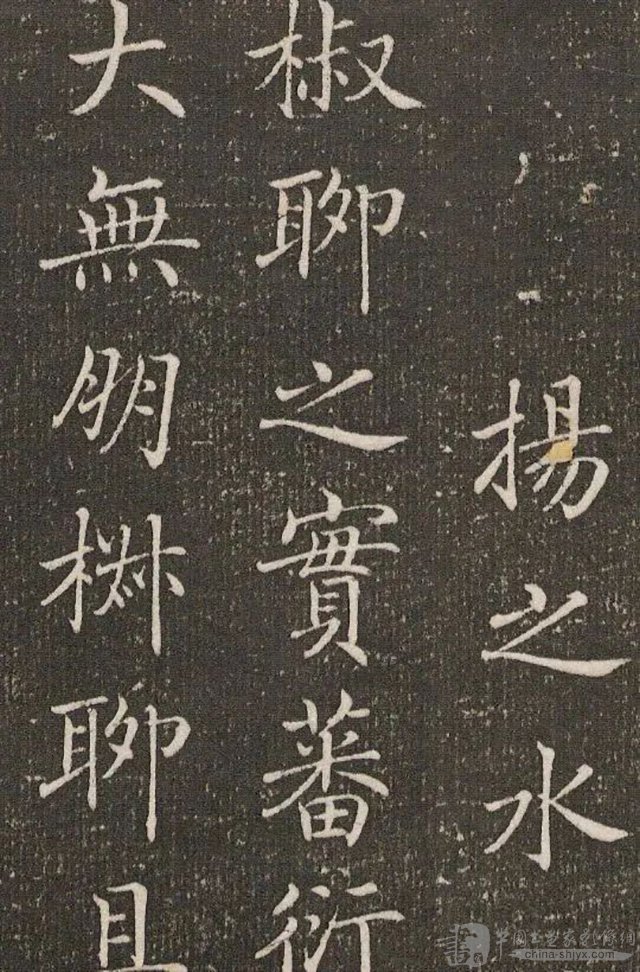 揚之水
椒聊之實蕃衍
大無朋椒聊且
china-shjyx.com